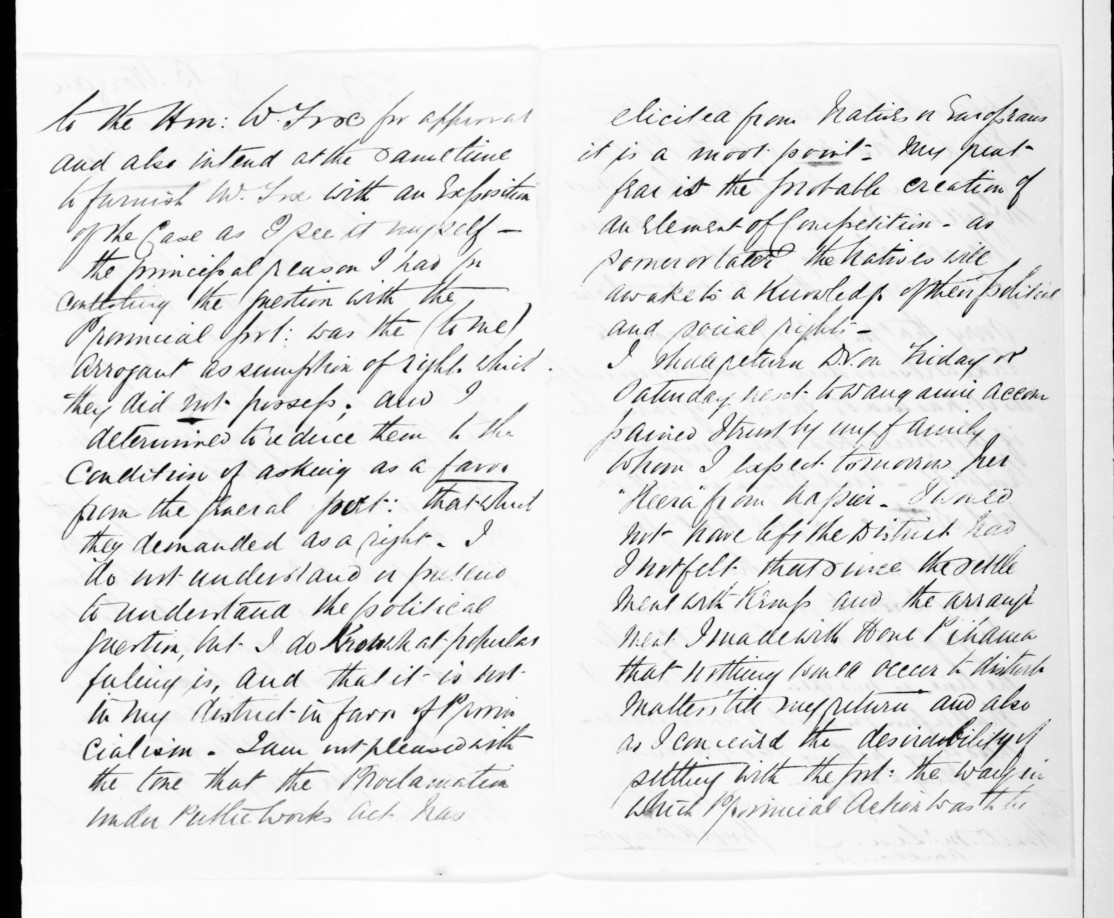 to the Hon: W. Fox for approval
and also intend at the same time
to furnish W. Fox with an Exposition
of the Case as I see it myself —
the principal reason I had for
contesting the question with the
Provincial Govt: was the (to me)
arrogant assumption of right which
they did not possess. and I
determined to reduce them to the
condition of asking as a favor
from the General Govt: that which
they demanded as a right. I
do not understand or pretend
to understand the political
question, but I do know what popular
feeling is, and that it is not
in my district in favor of Provin
cialism. I am not pleased with
the tone that the Proclamation
under Public Works Act has
elicited from Natives or Europeans
it is a moot point. My great
fear is the probable creation of
an Element of Competition. as
sooner or later the Natives will
awake to a knowledge of their political
and social rights —
I shall return DV on Friday or
Saturday next to Wanganui accom
panied I trust by my family
whom I expect tomorrow per
"Keera" from Napier. I would
not have left the District had
I not felt that since the settle
ment with Kemp and the arrange
ment I made with Hone Pihama
that nothing would occur to disturb
matters till my return and also
as I conceived the desirability of
settling with the Govt: the way in
which Provincial Action was to be